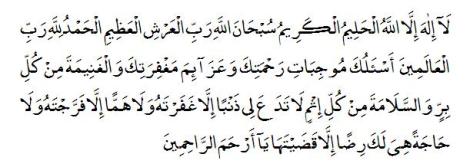 لَآ إِلٰهَ إِلَّا اللَّهُ الْحَلِيمُ الْكَرِيمُ سُبْحَانَ اللَّهِ رَبِّ الْعَرْشِ الْعَظِيمِ الْحَمْدُ لِلَّهِ رَبِّ
الْعَالَمِينَ أَسْئَلُكَ مُوجِبَاتِ رَحْمَتِكَ وَعَزَآئِمَ مَغْفِرَتِكَ وَالْغَنِيمَةَ مِنْ كُلِّ
بِرٍّ وَالسَّلَامَةَ مِنْ كُلِّ إِثْمٍ لَا تَدَعْ لِى ذَنْبًا إِلَّا غَفَرْتَهُ وَلَا هَمًّا إِلَّا فَرَّجْتَهُ وَلَا
حَاجَةً هِىَ لَكَ رِضًا إِلَّا قَضَيْتَهَا يَآ أَرْحَمَ الرَّاحِمِينَ